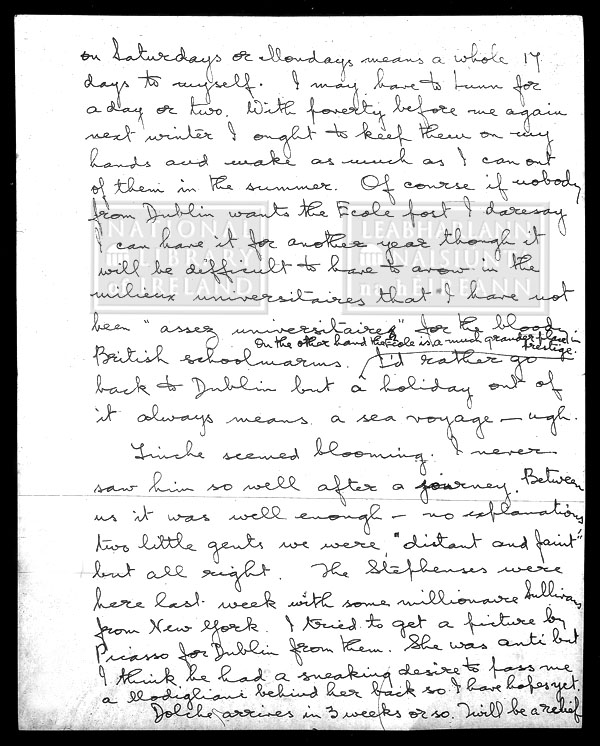 on Saturdays or Mondays means a whole 17
days to myself. I may have to turn for
a day or two. With poverty before me again
next winter I ought to keep them on my
hands and make as much as I can out
of them in the summer. Of course if nobody
from Dublin wants the Ecole post I daresay
I can have it for another year though it
will be difficult to have to avow in the
milieux universitaires that I have not
been "assez universitaires" for the bloody
British schoolmarms. On the other hand the Ecole is a much grander place in
prestige.
I'd rather go
back to Dublin but a holiday out of
it always means a sea voyage — ugh.
seemed blooming. I never
saw him so well after a journey. Between
us it was well enough — no explanations
two little gents we were, "distant and faint"
but all right. The Stephenses were
here last week with some millionaire Sullivans
from New York. I tried to get a picture by
Picasso for Dublin from them. She was anti but
I think he had a sneaking desire to pass me
a Modigliani behind her back so I have hopes yet.
arrives in 3 weeks or so. 'Twill be a relief
NATIONAL
LIBRARY
of IRELAND
LEABHARLANN
NÁISIÚNTA
na hÉIREANN